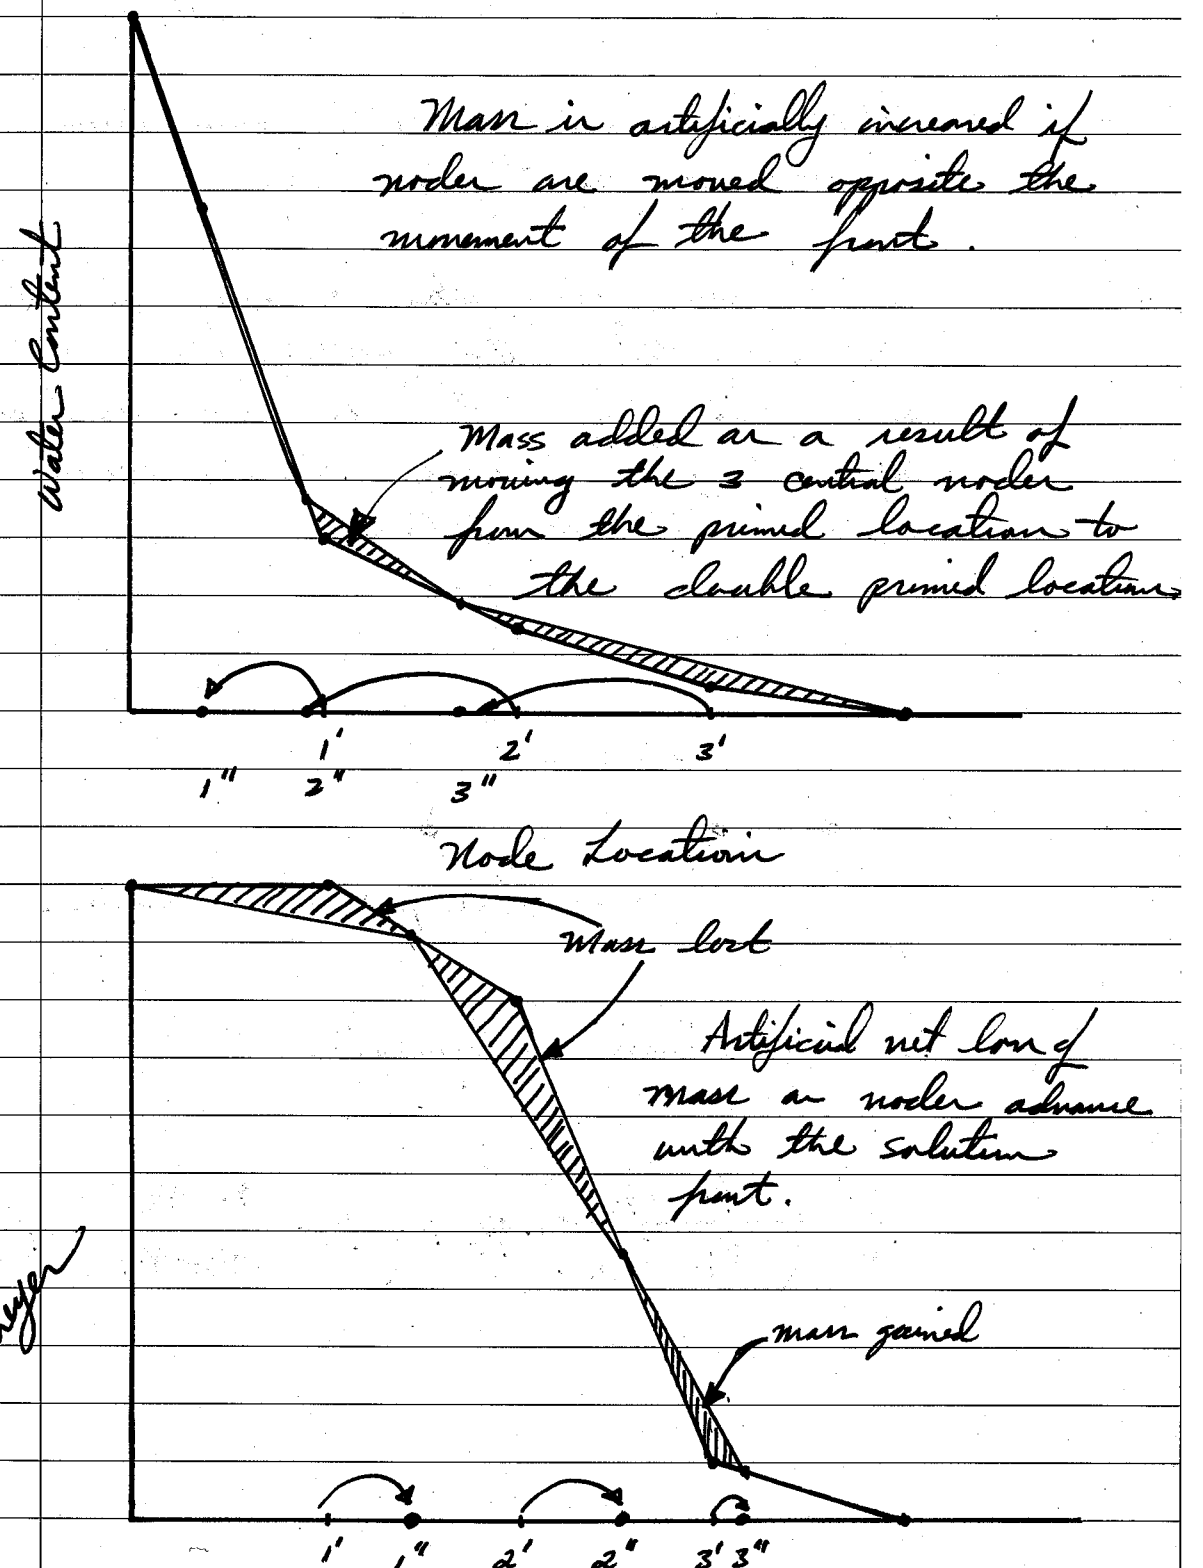 Mass is artificially increased if
nodes are moved opposite the
movement of the front.
Water Content
Mass added as a result of
moving the 3 central nodes
from the primed location to
the double primed location
1' 2' 3'
1" 2" 3"
Node Location
Mass lost
Artificial net loss of
mass as nodes advance
with the solution
front.
mass gained
1' 1" 2' 2" 3' 3"